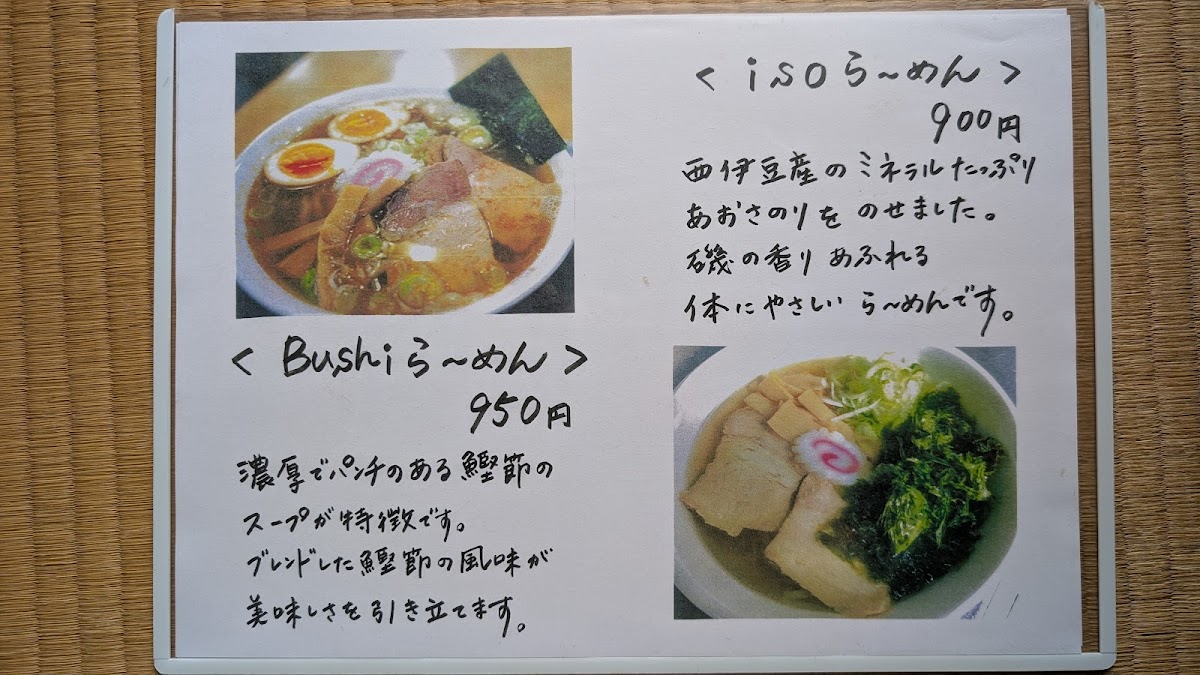 < Bushi ら～めん >
950円
濃厚でパンチのある鰹節の
スープが特徴です。
ブレンドした鰹節の風味が
美味しさを引き立てます。
< iso ら～めん >
900円
西伊豆産のミネラルたっぷり
あおさのりをのせました。
磯の香りあふれる
体にやさしいら～めんです。